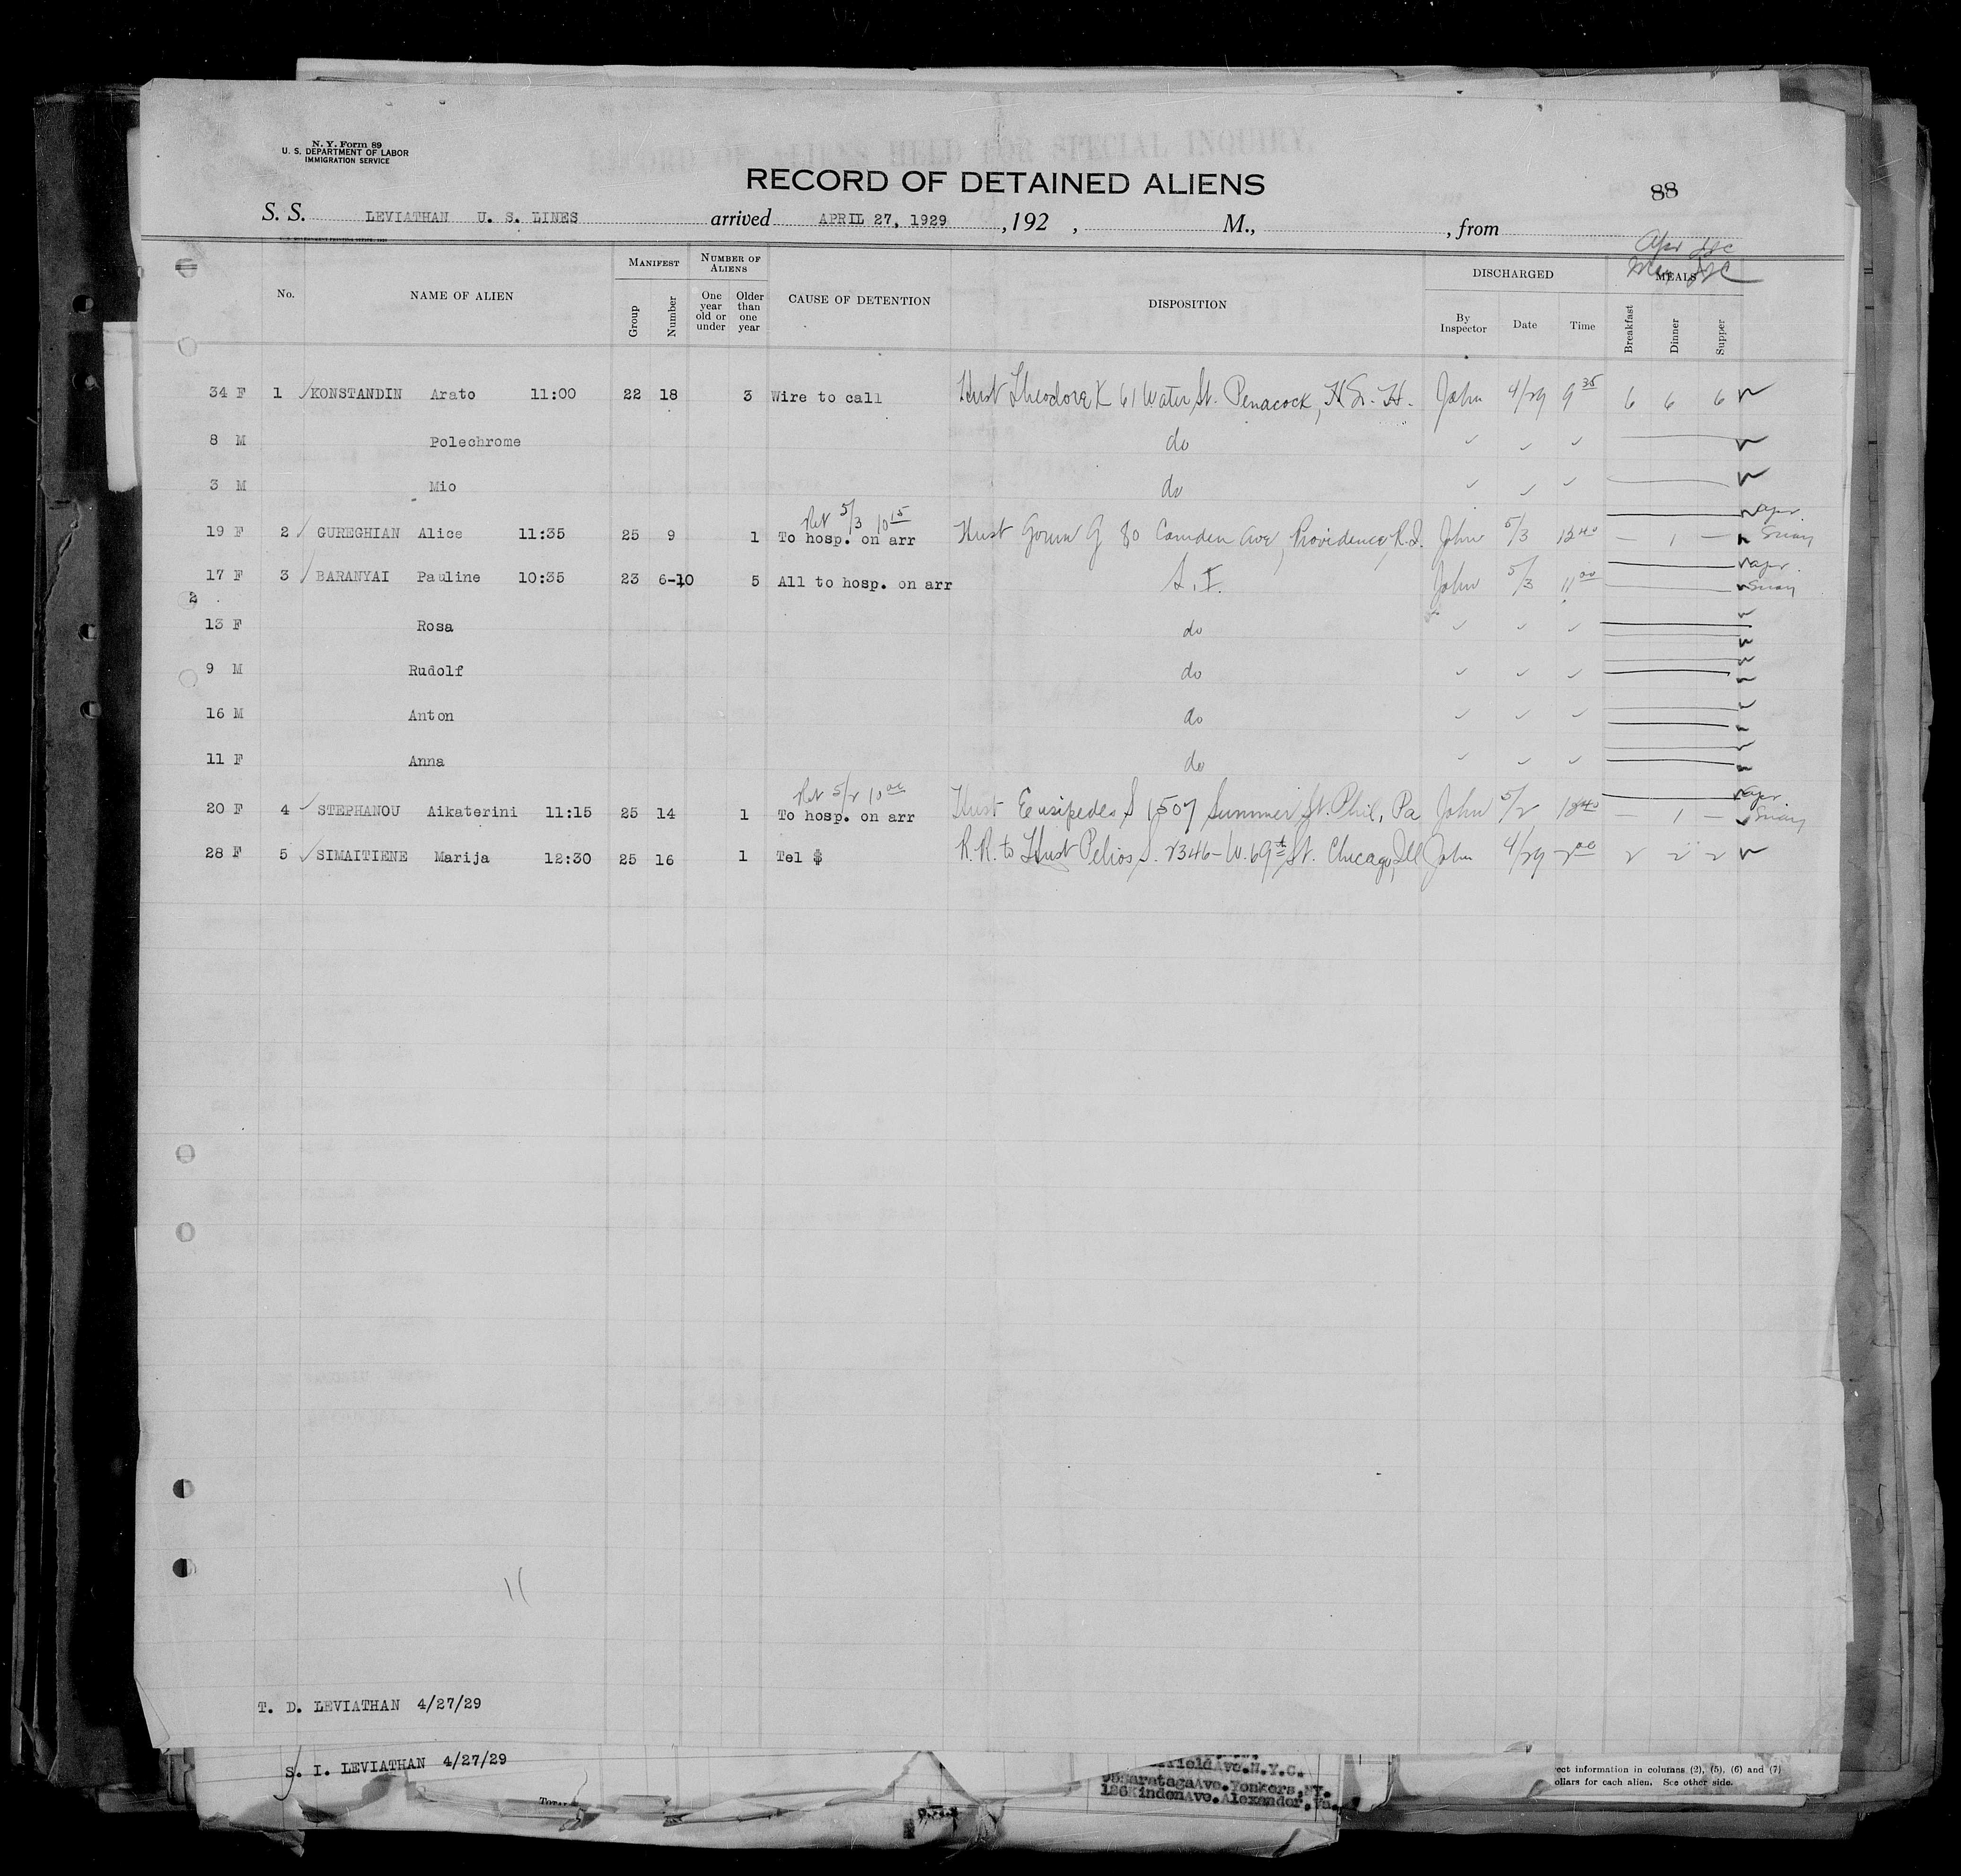 N. Y. Form 89
U. S. DEPARTMENT OF LABOR
IMMIGRATION SERVICE
RECORD OF ALIENS HELD FOR SPECIAL INQUIRY.
RECORD OF DETAINED ALIENS
88
S. S. LEVIATHAN U. S. LINES arrived APRIL 27, 1929 , 192 , M., , from
Apr
May
No. NAME OF ALIEN MANIFEST Group Number NUMBER OF ALIENS One year old or under Older than one year CAUSE OF DETENTION DISPOSITION DISCHARGED By Inspector Date Time MEALS Breakfast Dinner Supper
34 F 1 ✓KONSTANDIN Arato 11:00 22 18 3 Wire to call Hust Theodore K 61 Water St. Penacock, N. H. John 4/29 9 35 6 6 6 ✓
8 M Polechrome do ✓ ✓ ✓ ✓
3 M Mio do ✓ ✓ ✓ ✓
Ret 5/3 10 15
19 F 2 ✓ GUREGHIAN Alice 11:35 25 9 1 To hosp. on arr Hust G 80 Camden Ave, Providence R.I. John 5/3 12 40 — 1 — Apr.
17 F 3 ✓ BARANYAI Pauline 10:35 23 6-10 5 All to hosp. on arr S. I. John 5/3 11 00 Apr.
2
13 F Rosa do ✓ ✓ ✓
9 M Rudolf do ✓ ✓ ✓
16 M Anton do ✓ ✓ ✓
11 F Anna do ✓ ✓ ✓
Ret 5/2 10 00
20 F 4 ✓ STEPHANOU Aikaterini 11:15 25 14 1 To hosp. on arr Hust Eusipedes S 1507 Summer St. Phil, Pa John 5/2 12 40 — 1 — Apr.
28 F 5 ✓ SIMAITIENE Marija 12:30 25 16 1 Tel $ R.R. to Hust Pelios S. 2346 - W. 69th St. Chicago, Ill John 4/29 2 00 2 2 2 ✓
11
T. D. LEVIATHAN 4/27/29
S. I. LEVIATHAN 4/27/29
field Ave. N.Y.C.
Saratoga Ave. Yonkers, NY.
126 Linden Ave. Alexander, Va.
rect information in columns (2), (5), (6) and (7)
ollars for each alien. See other side.